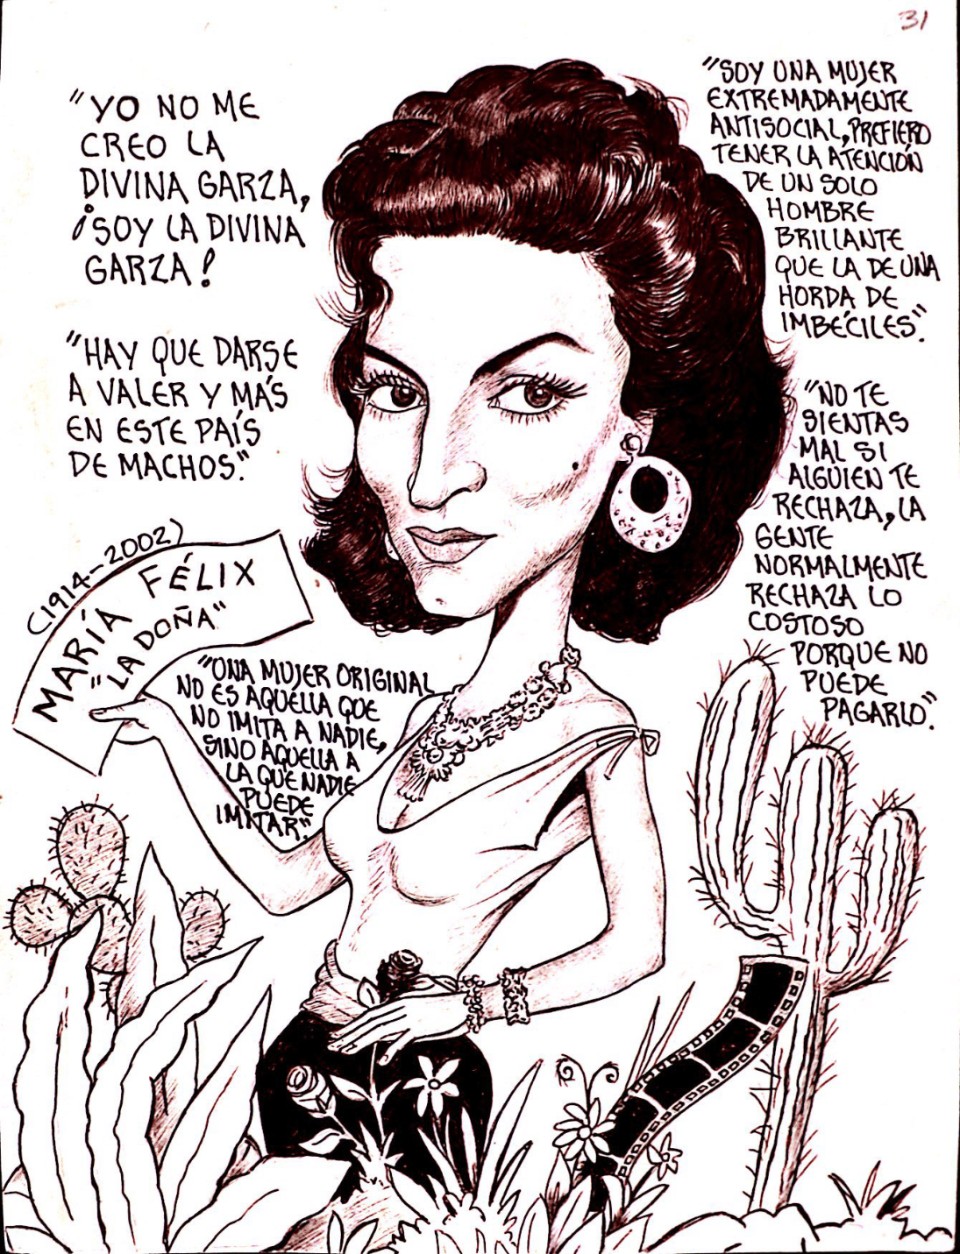 31
"YO NO ME
CREO LA
DIVINA GARZA,
¡SOY LA DIVINA
GARZA!
"HAY QUE DARSE
A VALER Y MÁS
EN ESTE PAÍS
DE MACHOS."
"SOY UNA MUJER
EXTREMADAMENTE
ANTISOCIAL, PREFIERO
TENER LA ATENCIÓN
DE UN SOLO
HOMBRE
BRILLANTE
QUE LA DE UNA
HORDA DE
IMBÉCILES."
"NO TE
SIENTAS
MAL SI
ALGUIEN TE
RECHAZA, LA
GENTE
NORMALMENTE
RECHAZA LO
COSTOSO
PORQUE NO
PUEDE
PAGARLO."
(1914-2002)
MARÍA FÉLIX
"LA DOÑA"
"UNA MUJER ORIGINAL
NO ES AQUELLA QUE
NO IMITA A NADIE,
SINO AQUELLA A
LA QUE NADIE
PUEDE
IMITAR".